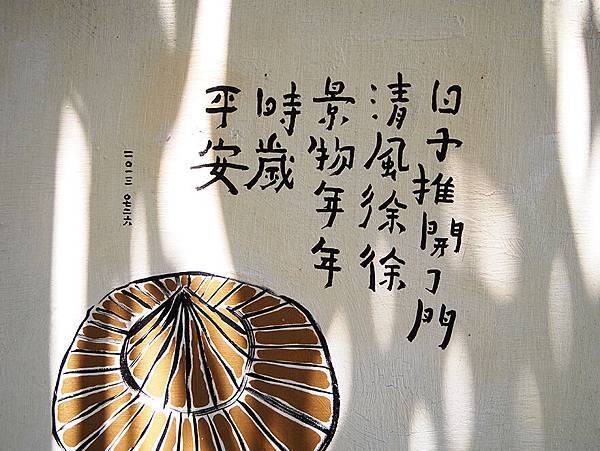 日子推開了門
清風徐徐
景物年年
時歲
平安
二〇一三 〇七二六